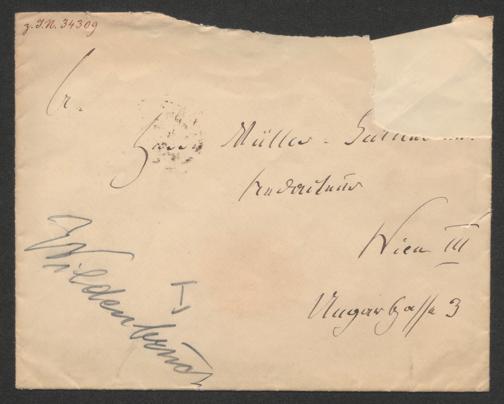 z. I.N. 34309
Sr.
Herrn Müller-
Redacteur
Wien III
Ungargasse 3
I
Wildenbruch